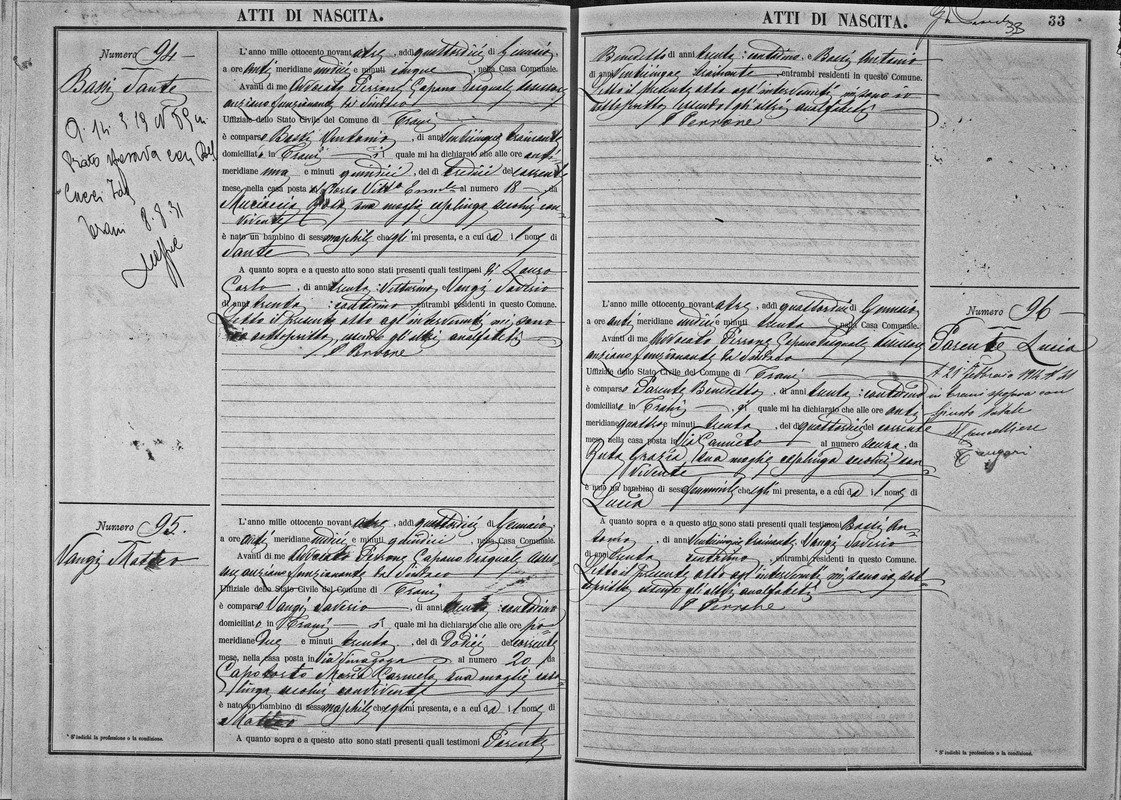 ATTI DI NASCITA.
Numero 94
Sante
Trani 8.8.31
L'anno mille ottocento novantatre, addì quattordici di Gennaio
a ore anti meridiane undici e minuti cinque, nella Casa Comunale.
Avanti di me Avvocato Perrone Capano Pasquale Assessore
anziano funzionante da Sindaco
Uffiziale dello Stato Civile del Comune di Trani
è comparso Antonio, di anni venticinque trainante
domiciliato in Trani quale mi ha dichiarato che alle ore anti
meridiane una e minuti quindici, del dì tredici del corrente
mese, nella casa posta al numero 18, da
sua moglie casalinga seco lui con
vivente
è nato un bambino di sesso maschile che egli mi presenta, e a cui dà il nome di
Sante
A quanto sopra e a questo atto sono stati presenti quali testimoni Di Lauro
Carlo, di anni trenta, vetturino e Vangi Saverio
di anni trenta contadino entrambi residenti in questo Comune.
Letto il presente atto agl'intervenuti mi sono
io sottoscritto, essendo gli altri analfabeti
P Perrone
Numero 95.
Vangi Matteo
L'anno mille ottocento novantatre, addì quattordici di Gennaio
a ore anti meridiane undici e minuti quindici, nella Casa Comunale.
Avanti di me Avvocato Perrone Capano Pasquale
anziano funzionante da Sindaco
Uffiziale dello Stato Civile del Comune di Trani
è comparso Vangi Saverio, di anni trenta contadino
domiciliato in Trani quale mi ha dichiarato che alle ore po
meridiane due e minuti trenta, del dì dodici del corrente
mese, nella casa posta in Via Sinagoga al numero 20, da
Capotorto Maria Carmela sua moglie casa
linga seco lui convivente
è nato un bambino di sesso maschile che egli mi presenta, e a cui dà il nome di
Matteo
A quanto sopra e a questo atto sono stati presenti quali testimoni Parente
* S'indichi la professione o la condizione.
ATTI DI NASCITA.
33
33
Benedetto di anni trenta: contadino e Antonio
di anni venticinque trainante, entrambi residenti in questo Comune.
Letto il presente atto agl'intervenuti, mi sono io
sottoscritto essendo gli altri analfabeti
P Perrone
L'anno mille ottocento novantatre, addì quattordici di Gennaio
a ore anti meridiane undici e minuti trenta, nella Casa Comunale.
Avanti di me Avvocato Perrone Capano Pasquale Assessore
anziano funzionante da Sindaco
Uffiziale dello Stato Civile del Comune di Trani
è comparso Parente Benedetto, di anni trenta: contadino
domiciliato in Trani quale mi ha dichiarato che alle ore anti
meridiane quattro e minuti trenta, del dì quattordici del corrente
mese, nella casa posta in Via al numero senza, da
Grazia sua moglie casalinga seco lui con
vivente
è nato un bambino di sesso femminile che egli mi presenta, e a cui dà il nome di
Lucia
A quanto sopra e a questo atto sono stati presenti quali testimoni An
tonio, di anni venticinque trainante Vangi Saverio
di anni trenta contadino, entrambi residenti in questo Comune.
Letto il presente atto agl'intervenuti mi sono io sot
toscritto essendo gli altri analfabeti
P Perrone
Numero 96
Parente Lucia
A 21 Febbraio 1914
in Trani sposava con
Natale
Il Cancelliere
* S'indichi la professione o la condizione.